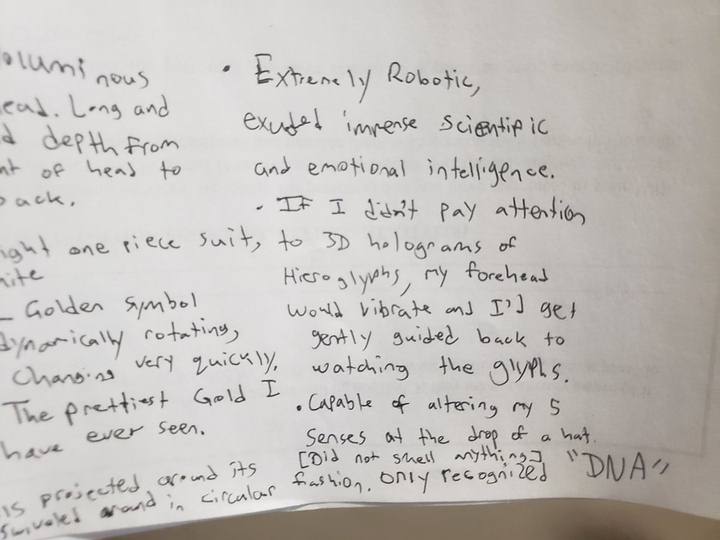 oluminous
ead. Long and
d depth from
nt of head to
ack.
ight one piece suit,
ite
- Golden symbol
dynamically rotating,
Changing very quickly.
The prettiest Gold I
have ever seen.
is projected around its
swiveled around in circular fashion. only recognized "DNA"
• Extremely Robotic,
exuded immense scientific
and emotional intelligence.
• If I didn't pay attention
to 3D holograms of
Hieroglyphs, my forehead
would vibrate and I'd get
gently guided back to
watching the glyphs.
• Capable of altering my 5
senses at the drop of a hat.
[Did not smell anything]